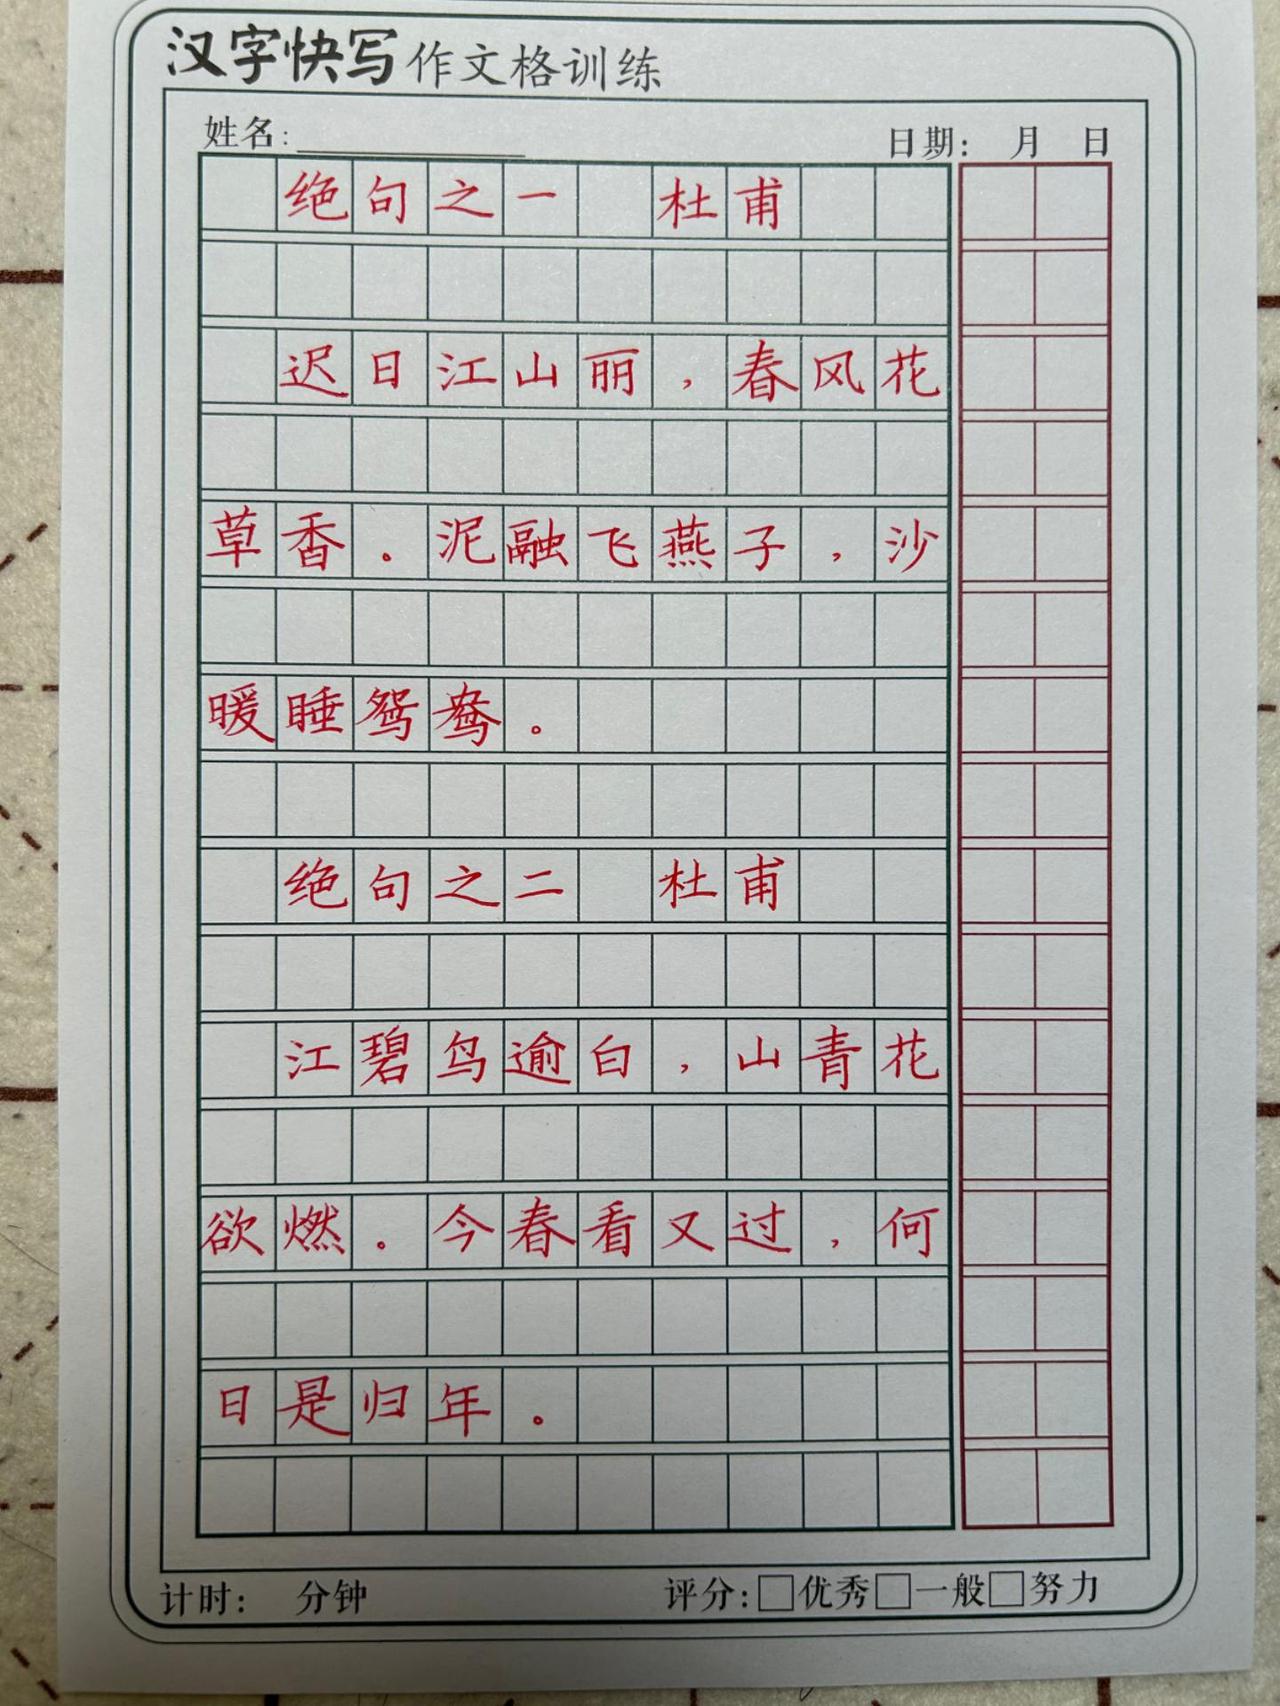 汉字快写作文格训练
姓名: 日期: 月 日
绝句之一 杜甫
迟日江山丽，春风花
草香。泥融飞燕子，沙
暖睡鸳鸯。
绝句之二 杜甫
江碧鸟逾白，山青花
欲燃。今春看又过，何
日是归年。
计时: 分钟 评分:□优秀□一般□努力